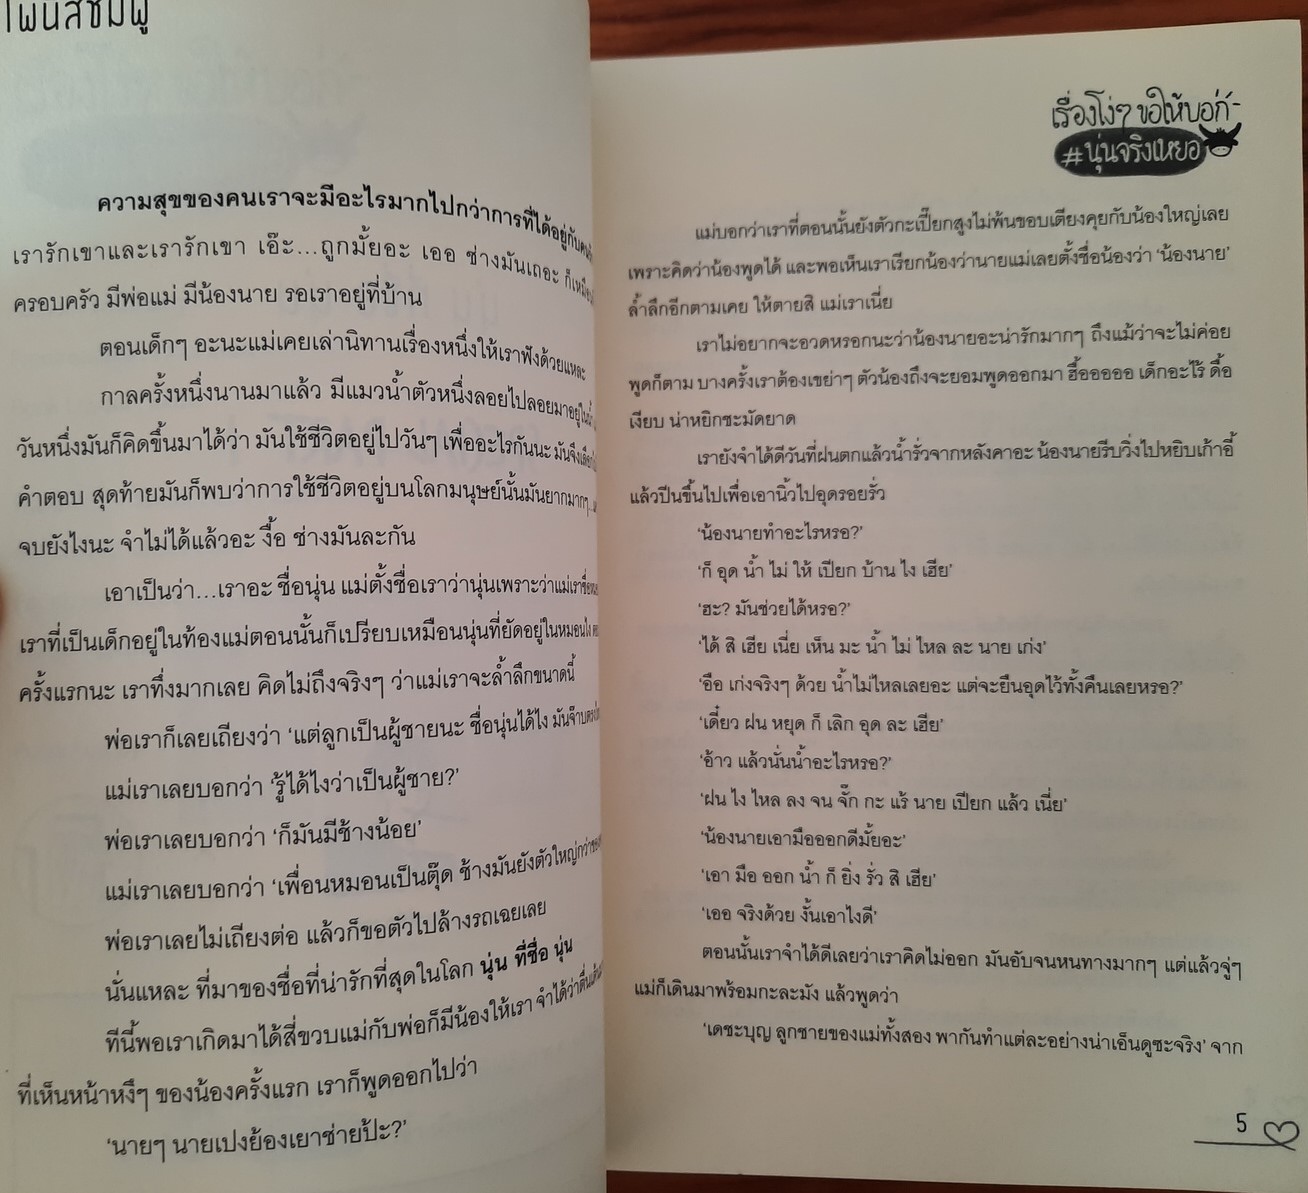 โพนี่สีชมพู
ความสุขของคนเราจะมีอะไรมากไปกว่าการที่ได้อยู่กับคน
เรารักเขาและเรารักเขา เอ๊ะ...ถูกมั้ยอะ เออ ช่างมันเถอะ ก็เหมือน
ครอบครัว มีพ่อแม่ มีน้องนาย รอเราอยู่ที่บ้าน
ตอนเด็กๆ อะนะแม่เคยเล่านิทานเรื่องหนึ่งให้เราฟังด้วยแหละ
กาลครั้งหนึ่งนานมาแล้ว มีแมวน้ำตัวหนึ่งลอยไปลอยมาอยู่ใน
วันหนึ่งมันก็คิดขึ้นมาได้ว่า มันใช้ชีวิตอยู่ไปวันๆ เพื่ออะไรกันนะ มันจึง
คำตอบ สุดท้ายมันก็พบว่าการใช้ชีวิตอยู่บนโลกมนุษย์นั้นมันยากมากๆ...
จบยังไงนะ จำไม่ได้แล้วอะ งื้อ ช่างมันละกัน
เอาเป็นว่า...เราอะ ชื่อนุ่น แม่ตั้งชื่อเราว่านุ่นเพราะว่าแม่เรา
เราที่เป็นเด็กอยู่ในท้องแม่ตอนนั้นก็เปรียบเหมือนนุ่นที่ยัดอยู่ในหมอนไง
ครั้งแรกนะ เราทึ่งมากเลย คิดไม่ถึงจริงๆ ว่าแม่เราจะล้ำลึกขนาดนี้
พ่อเราก็เลยเถียงว่า ‘แต่ลูกเป็นผู้ชายนะ ชื่อนุ่นได้ไง มัน
แม่เราเลยบอกว่า ‘รู้ได้ไงว่าเป็นผู้ชาย?’
พ่อเราเลยบอกว่า ‘ก็มันมีช้างน้อย’
แม่เราเลยบอกว่า ‘เพื่อนหมอนเป็นตุ๊ด ช้างมันยังตัวใหญ่กว่า
พ่อเราเลยไม่เถียงต่อ แล้วก็ขอตัวไปล้างรถเฉยเลย
นั่นแหละ ที่มาของชื่อที่น่ารักที่สุดในโลก นุ่น ที่ชื่อ นุ่น
ทีนี้พอเราเกิดมาได้สี่ขวบแม่กับพ่อก็มีน้องให้เรา จำได้ว่า
ที่เห็นหน้าหงึๆ ของน้องครั้งแรก เราก็พูดออกไปว่า
‘นายๆ นายเปงย้องเยาช่ายป้ะ?’
เรื่องโง่ๆ ขอให้บอก์
#นุ่นจริงเหยอ
แม่บอกว่าเราที่ตอนนั้นยังตัวกะเปี๊ยกสูงไม่พ้นขอบเตียงคุยกับน้องใหญ่เลย
เพราะคิดว่าน้องพูดได้ และพอเห็นเราเรียกน้องว่านายแม่เลยตั้งชื่อน้องว่า ‘น้องนาย’
ล้ำลึกอีกตามเคย ให้ตายสิ แม่เราเนี่ย
เราไม่อยากจะอวดหรอกนะว่าน้องนายอะน่ารักมากๆ ถึงแม้ว่าจะไม่ค่อย
พูดก็ตาม บางครั้งเราต้องเขย่าๆ ตัวน้องถึงจะยอมพูดออกมา ฮื้อออออ เด็กอะไร้ ดื้อ
เงียบ น่าหยิกซะมัดยาด
เรายังจำได้ดีวันที่ฝนตกแล้วน้ำรั่วจากหลังคาอะ น้องนายรีบวิ่งไปหยิบเก้าอี้
แล้วปีนขึ้นไปเพื่อเอานิ้วไปอุดรอยรั่ว
‘น้องนายทำอะไรหรอ?’
‘ก็ อุด น้ำ ไม่ ให้ เปียก บ้าน ไง เฮีย’
‘ฮะ? มันช่วยได้หรอ?’
‘ได้ สิ เฮีย เนี่ย เห็น มะ น้ำ ไม่ ไหล ละ นาย เก่ง’
‘อือ เก่งจริงๆ ด้วย น้ำไม่ไหลเลยอะ แต่จะยืนอุดไว้ทั้งคืนเลยหรอ?’
‘เดี๋ยว ฝน หยุด ก็ เลิก อุด ละ เฮีย’
‘อ้าว แล้วนั่นน้ำอะไรหรอ?’
‘ฝน ไง ไหล ลง จน จั๊ก กะ แร้ นาย เปียก แล้ว เนี่ย’
‘น้องนายเอามือออกดีมั้ยอะ’
‘เอา มือ ออก น้ำ ก็ ยิ่ง รั่ว สิ เฮีย’
‘เออ จริงด้วย งั้นเอาไงดี’
ตอนนั้นเราจำได้ดีเลยว่าเราคิดไม่ออก มันอับจนหนทางมากๆ แต่แล้วจู่ๆ
แม่ก็เดินมาพร้อมกะละมัง แล้วพูดว่า
‘เดชะบุญ ลูกชายของแม่ทั้งสอง พากันทำแต่ละอย่างน่าเอ็นดูซะจริง’ จาก
5